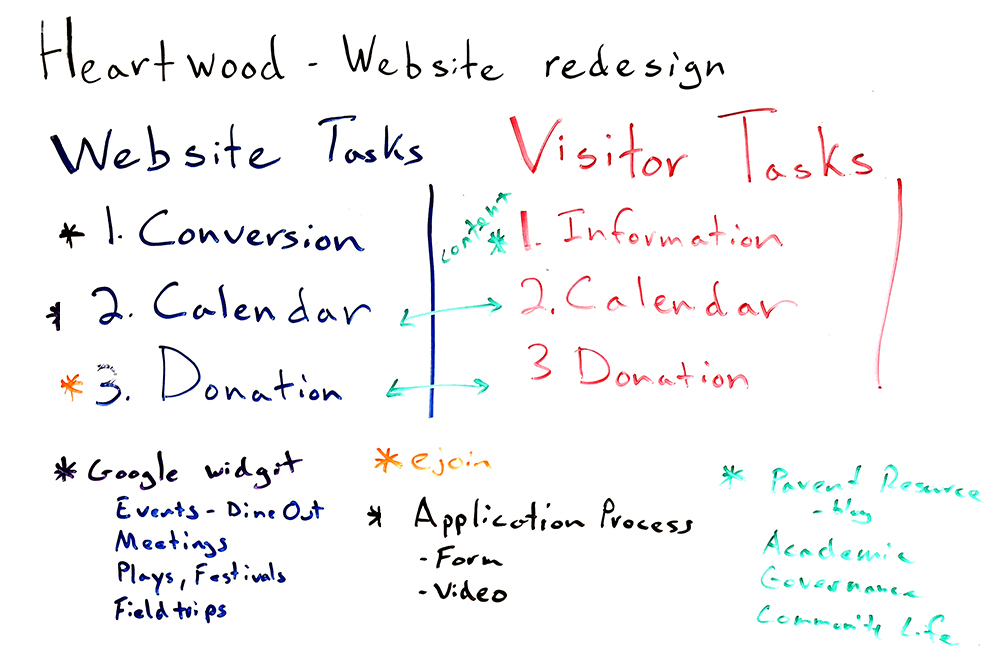 Heartwood - Website redesign
Website Tasks
* 1. Conversion
* 2. Calendar
* 3. Donation
Visitor Tasks
content
* 1. Information
2. Calendar
3 Donation
* Google widgit
Events - Dine Out
Meetings
Plays, Festivals
Field trips
* ejoin
* Application Process
- Form
- Video
* Parent Resource
- blog
Academic
Governance
Community Life